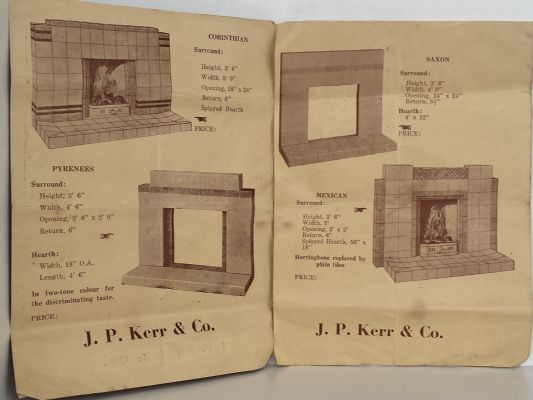 CORINTHIAN
Surround:
Height, 3' 6"
Width, 5' 0"
Opening, 18" x 24"
Return, 6"
Splayed Hearth
PRICE:
PYRENEES
Surround:
Height, 3' 6"
Width, 4' 6"
Opening, 2' 0" x 2' 0"
Return, 6"
Hearth:
" Width, 18" O.A.
Length, 4' 6"
In two-tone colour for
the discriminating taste.
PRICE:
J. P. Kerr & Co.
SAXON
Surround:
Height, 3' 6"
Width, 4' 0"
Opening, 24" x 24"
Return, 3½"
Hearth:
4' x 12"
PRICE:
MEXICAN
Surround:
Height, 3' 6"
Width, 5'
Opening, 2' x 2'
Return, 6"
Splayed Hearth, 56" x
18"
Herringbone replaced by
plain tiles
PRICE:
J. P. Kerr & Co.